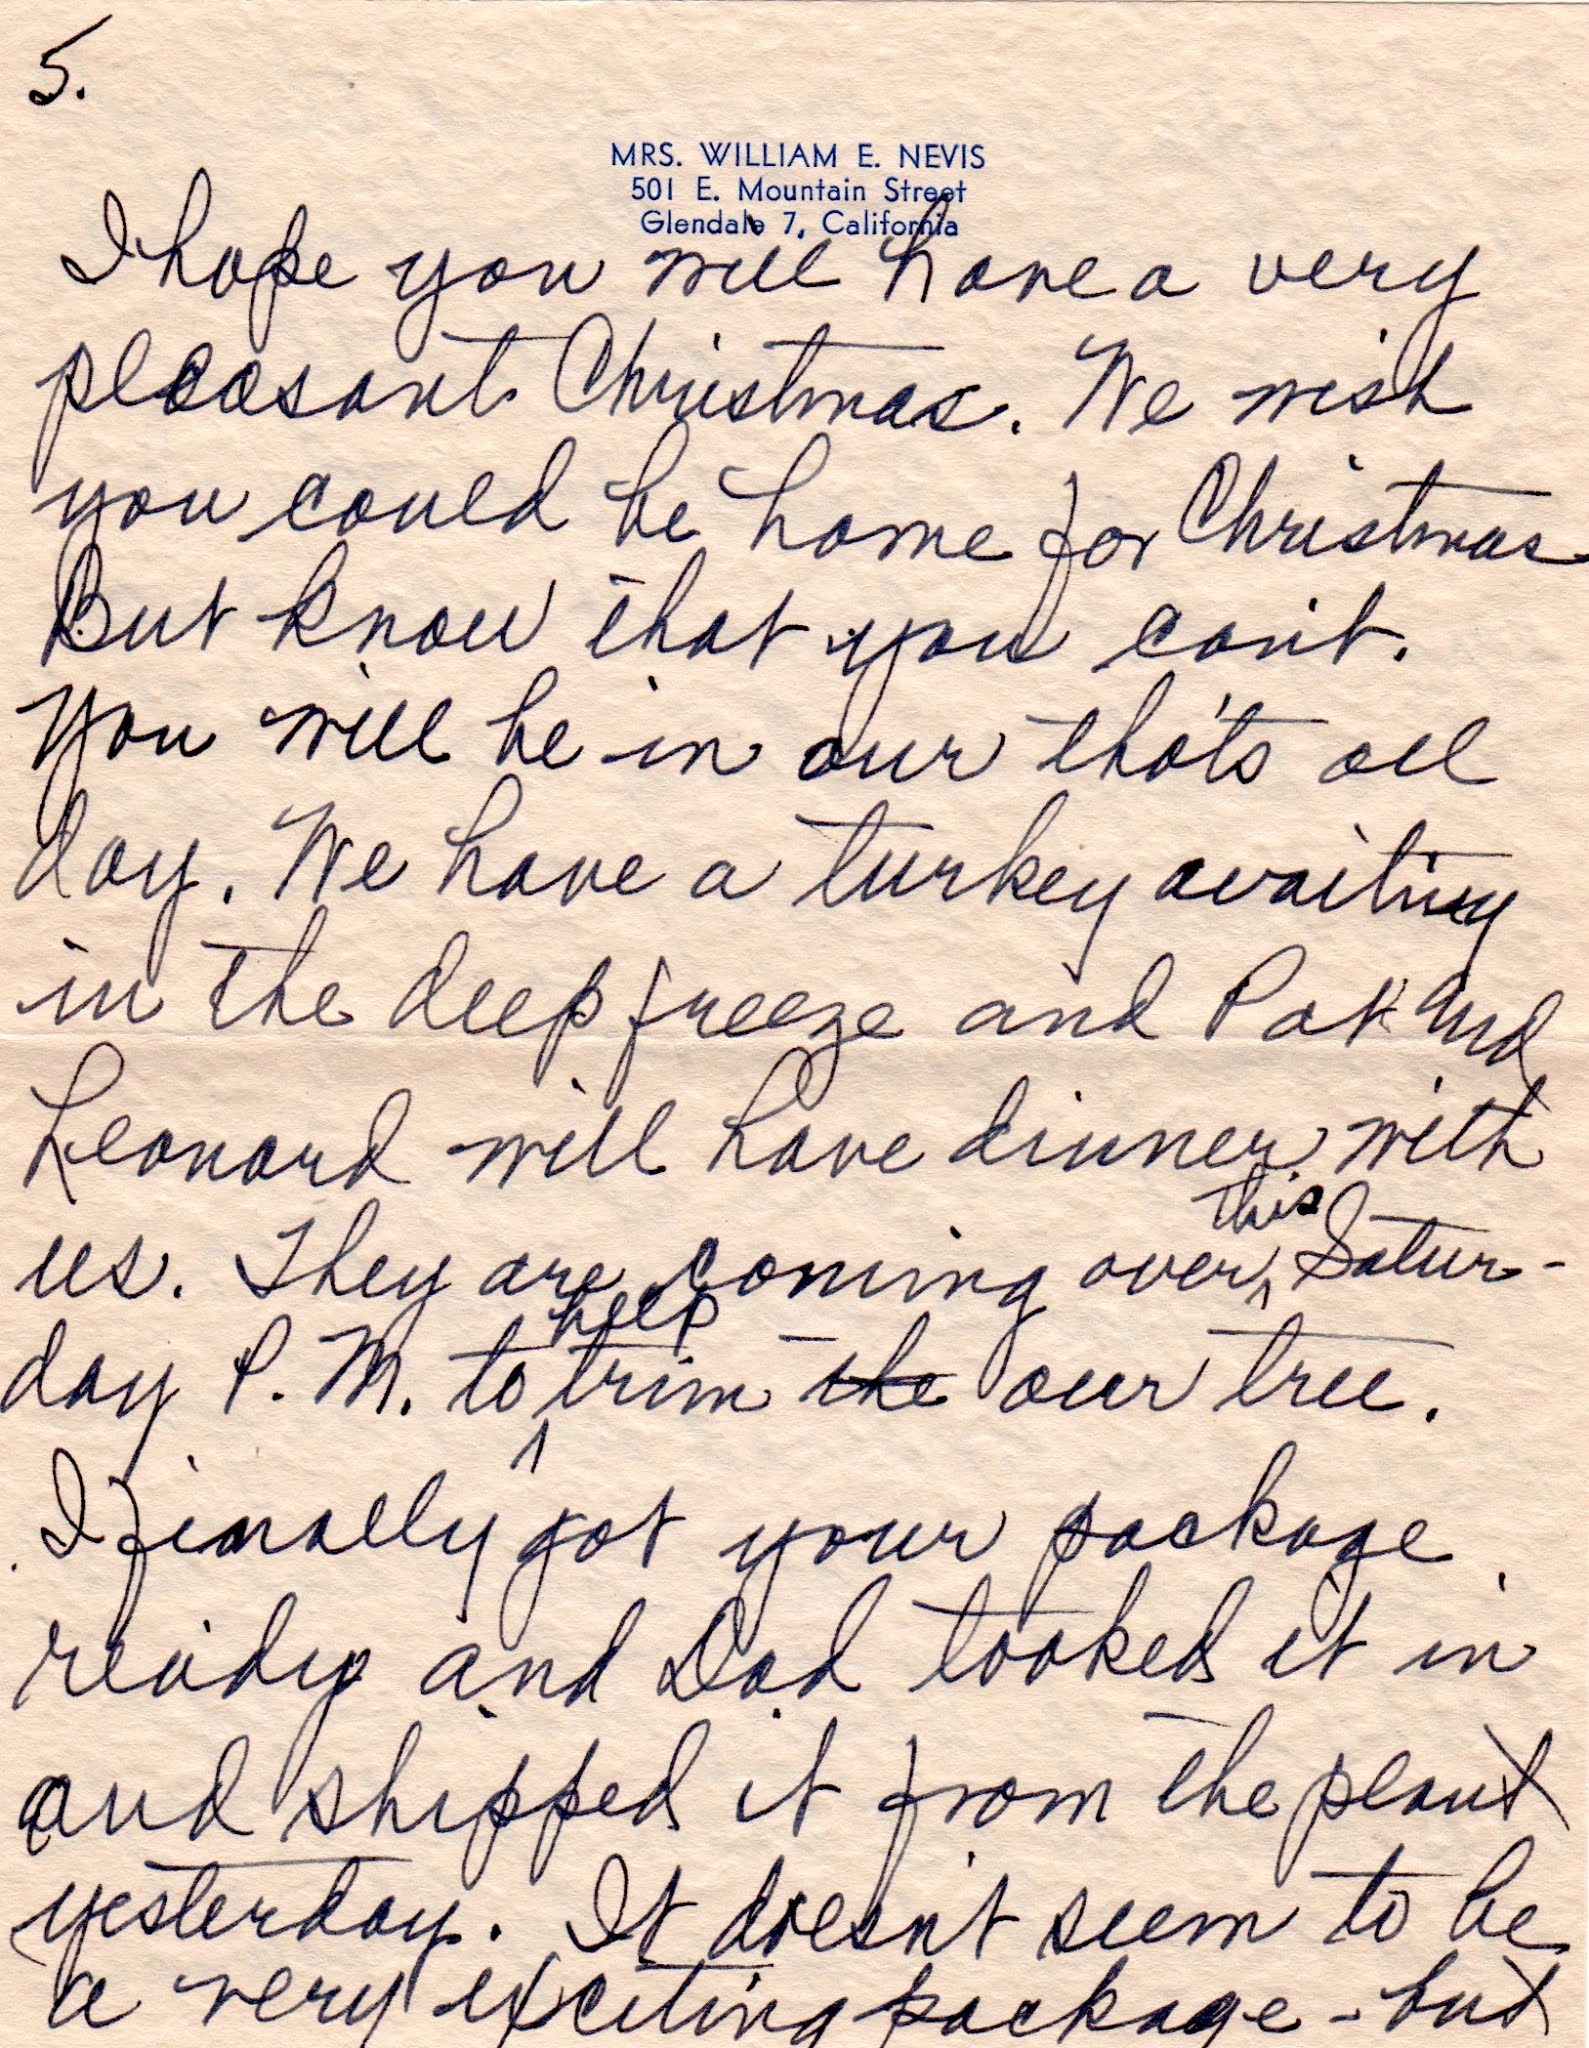 5.
MRS. WILLIAM E. NEVIS
501 E. Mountain Street
Glendale 7, California
I hope you will have a very
pleasant Christmas. We wish
you could be home for Christmas
But know that you can't.
You will be in our tho'ts all
day. We have a turkey awaiting
in the deep freeze and Pat and
Leonard will have dinner with
us. They are coming over this Satur-
day P.M. to help trim the our tree.
I finally got your package
ready and Dad tooked it in
and shipped it from the plant
yesterday. It doesn't seem to be
a very exciting package - but